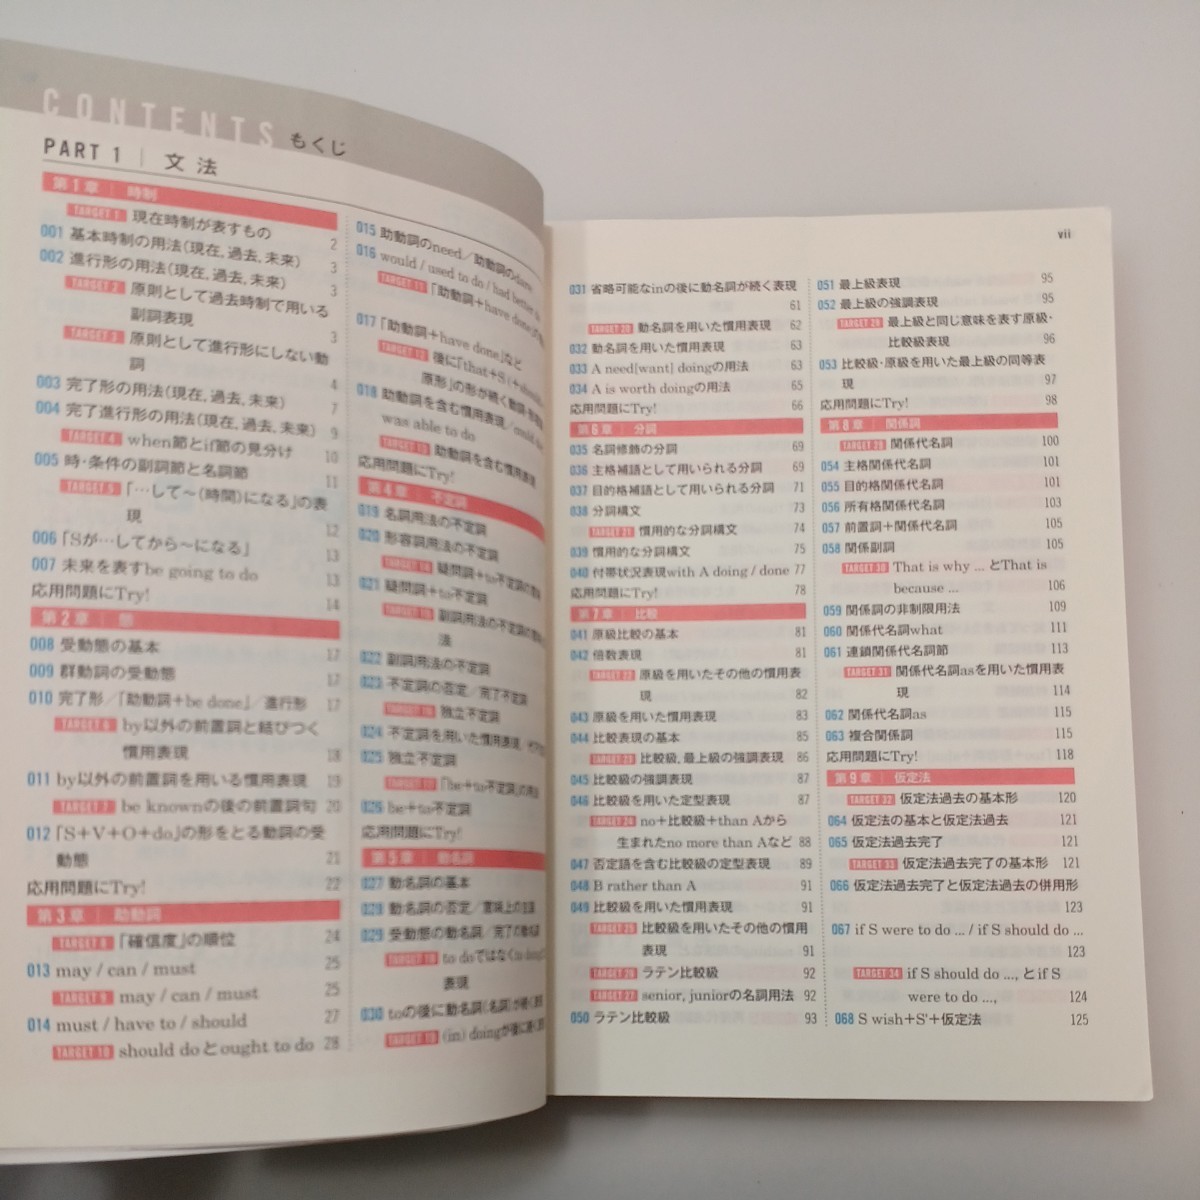 CONTENTS もくじ
PART 1 文法
第1章 時制
TARGET 1 現在時制が表すもの 2
001 基本時制の用法(現在, 過去, 未来) 3
002 進行形の用法(現在, 過去, 未来) 3
TARGET 2 原則として過去時制で用いる
副詞表現 3
TARGET 3 原則として進行形にしない動
詞 4
003 完了形の用法(現在, 過去, 未来) 7
004 完了進行形の用法(現在, 過去, 未来) 9
TARGET 4 when節とif節の見分け 10
005 時・条件の副詞節と名詞節 11
TARGET 5 「…して〜(時間)になる」の表
現 12
006 「Sが…してから〜になる」 13
007 未来を表すbe going to do 13
応用問題にTry! 14
第2章 態
008 受動態の基本 17
009 群動詞の受動態 17
010 完了形／「助動詞+be done」／進行形 17
TARGET 6 by以外の前置詞と結びつく
慣用表現 18
011 by以外の前置詞を用いる慣用表現 19
TARGET 7 be knownの後の前置詞句 20
012 「S+V+O+do」の形をとる動詞の受
動態 21
応用問題にTry! 22
第3章 助動詞
TARGET 8 「確信度」の順位 24
013 may / can / must 25
TARGET 9 may / can / must 25
014 must / have to / should 27
TARGET 10 should doとought to do 28
015 助動詞のneed／助動詞のdare
016 would / used to do / had better
TARGET 11 「助動詞+have done」
017 「助動詞+have done」など
TARGET 12 後に「that+S
原形」の形が続く動詞
018 助動詞を含む慣用表現
was able to do
TARGET 13 助動詞を含む慣用表現
応用問題にTry!
第4章 不定詞
019 名詞用法の不定詞
020 形容詞用法の不定詞
TARGET 14 疑問詞+to不定詞の
021 疑問詞+to不定詞
TARGET 15 副詞用法の不定詞の
法
022 副詞用法の不定詞
023 不定詞の否定／完了不定詞
TARGET 16 独立不定詞
024 不定詞を用いた慣用表現
025 独立不定詞
TARGET 17 「be+to不定詞」の用法
026 be+to不定詞
応用問題にTry!
第5章 動名詞
027 動名詞の基本
028 動名詞の否定／意味上の主語
029 受動態の動名詞／完了動名詞
TARGET 18 to doではなくto doing
表現
030 toの後に動名詞(名詞)が続く
TARGET 19 (in) doingが後に続く
vii
031 省略可能なinの後に動名詞が続く表現
61
TARGET 20 動名詞を用いた慣用表現 62
032 動名詞を用いた慣用表現 63
033 A need[want] doingの用法 63
034 A is worth doingの用法 65
応用問題にTry! 66
第6章 分詞
035 名詞修飾の分詞 69
036 主格補語として用いられる分詞 69
037 目的格補語として用いられる分詞 71
038 分詞構文 73
TARGET 21 慣用的な分詞構文 74
039 慣用的な分詞構文 75
040 付帯状況表現with A doing / done 77
応用問題にTry! 78
第7章 比較
041 原級比較の基本 81
042 倍数表現 81
TARGET 22 原級を用いたその他の慣用表
現 82
043 原級を用いた慣用表現 83
044 比較表現の基本 85
TARGET 23 比較級, 最上級の強調表現 86
045 比較級の強調表現 87
046 比較級を用いた定型表現 87
TARGET 24 no+比較級+than Aから
生まれたno more than Aなど 88
047 否定語を含む比較級の定型表現 89
048 B rather than A 91
049 比較級を用いた慣用表現 91
TARGET 25 比較級を用いたその他の慣用
表現 91
TARGET 26 ラテン比較級 92
TARGET 27 senior, juniorの名詞用法 92
050 ラテン比較級 93
051 最上級表現 95
052 最上級の強調表現 95
TARGET 28 最上級と同じ意味を表す原級・
比較級表現 96
053 比較級・原級を用いた最上級の同等表
現 97
応用問題にTry! 98
第8章 関係詞
TARGET 29 関係代名詞 100
054 主格関係代名詞 101
055 目的格関係代名詞 101
056 所有格関係代名詞 103
057 前置詞+関係代名詞 105
058 関係副詞 105
TARGET 30 That is why ... とThat is
because ... 106
059 関係詞の非制限用法 109
060 関係代名詞what 111
061 連鎖関係代名詞節 113
TARGET 31 関係代名詞asを用いた慣用表
現 114
062 関係代名詞as 115
063 複合関係詞 115
応用問題にTry! 118
第9章 仮定法
TARGET 32 仮定法過去の基本形 120
064 仮定法の基本と仮定法過去 121
065 仮定法過去完了 121
TARGET 33 仮定法過去完了の基本形 121
066 仮定法過去完了と仮定法過去の併用形
123
067 if S were to do ... / if S should do ...
123
TARGET 34 if S should do ..., とif S
were to do ..., 124
068 S wish+S'+仮定法 125